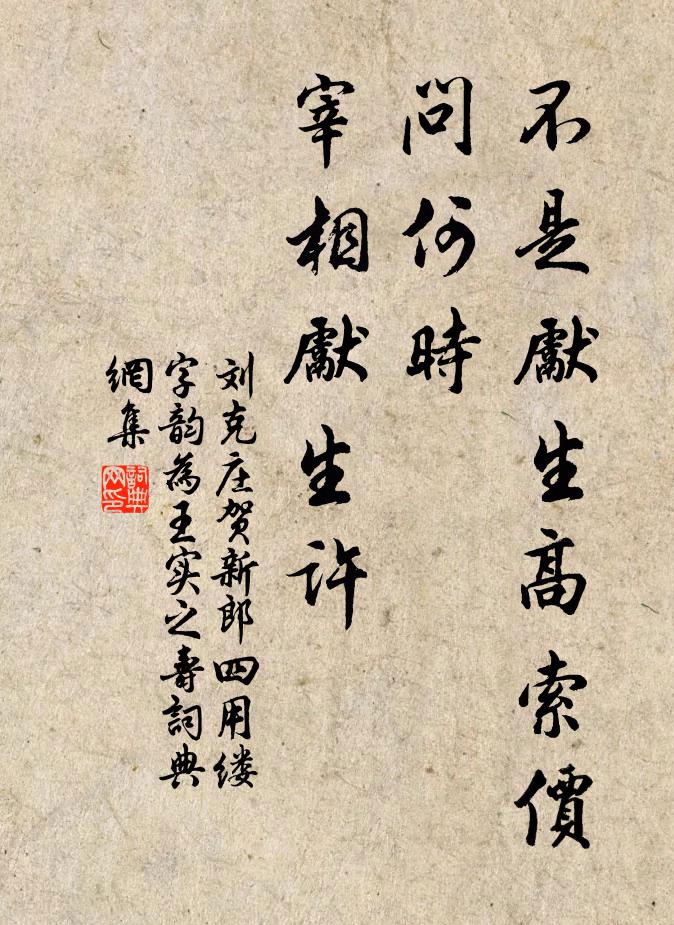 不是獻生高索價
問何時
宰相獻生許
刘克庄贺新郎四用缕
字韵為王实之壽詞典
網集
詞典网印